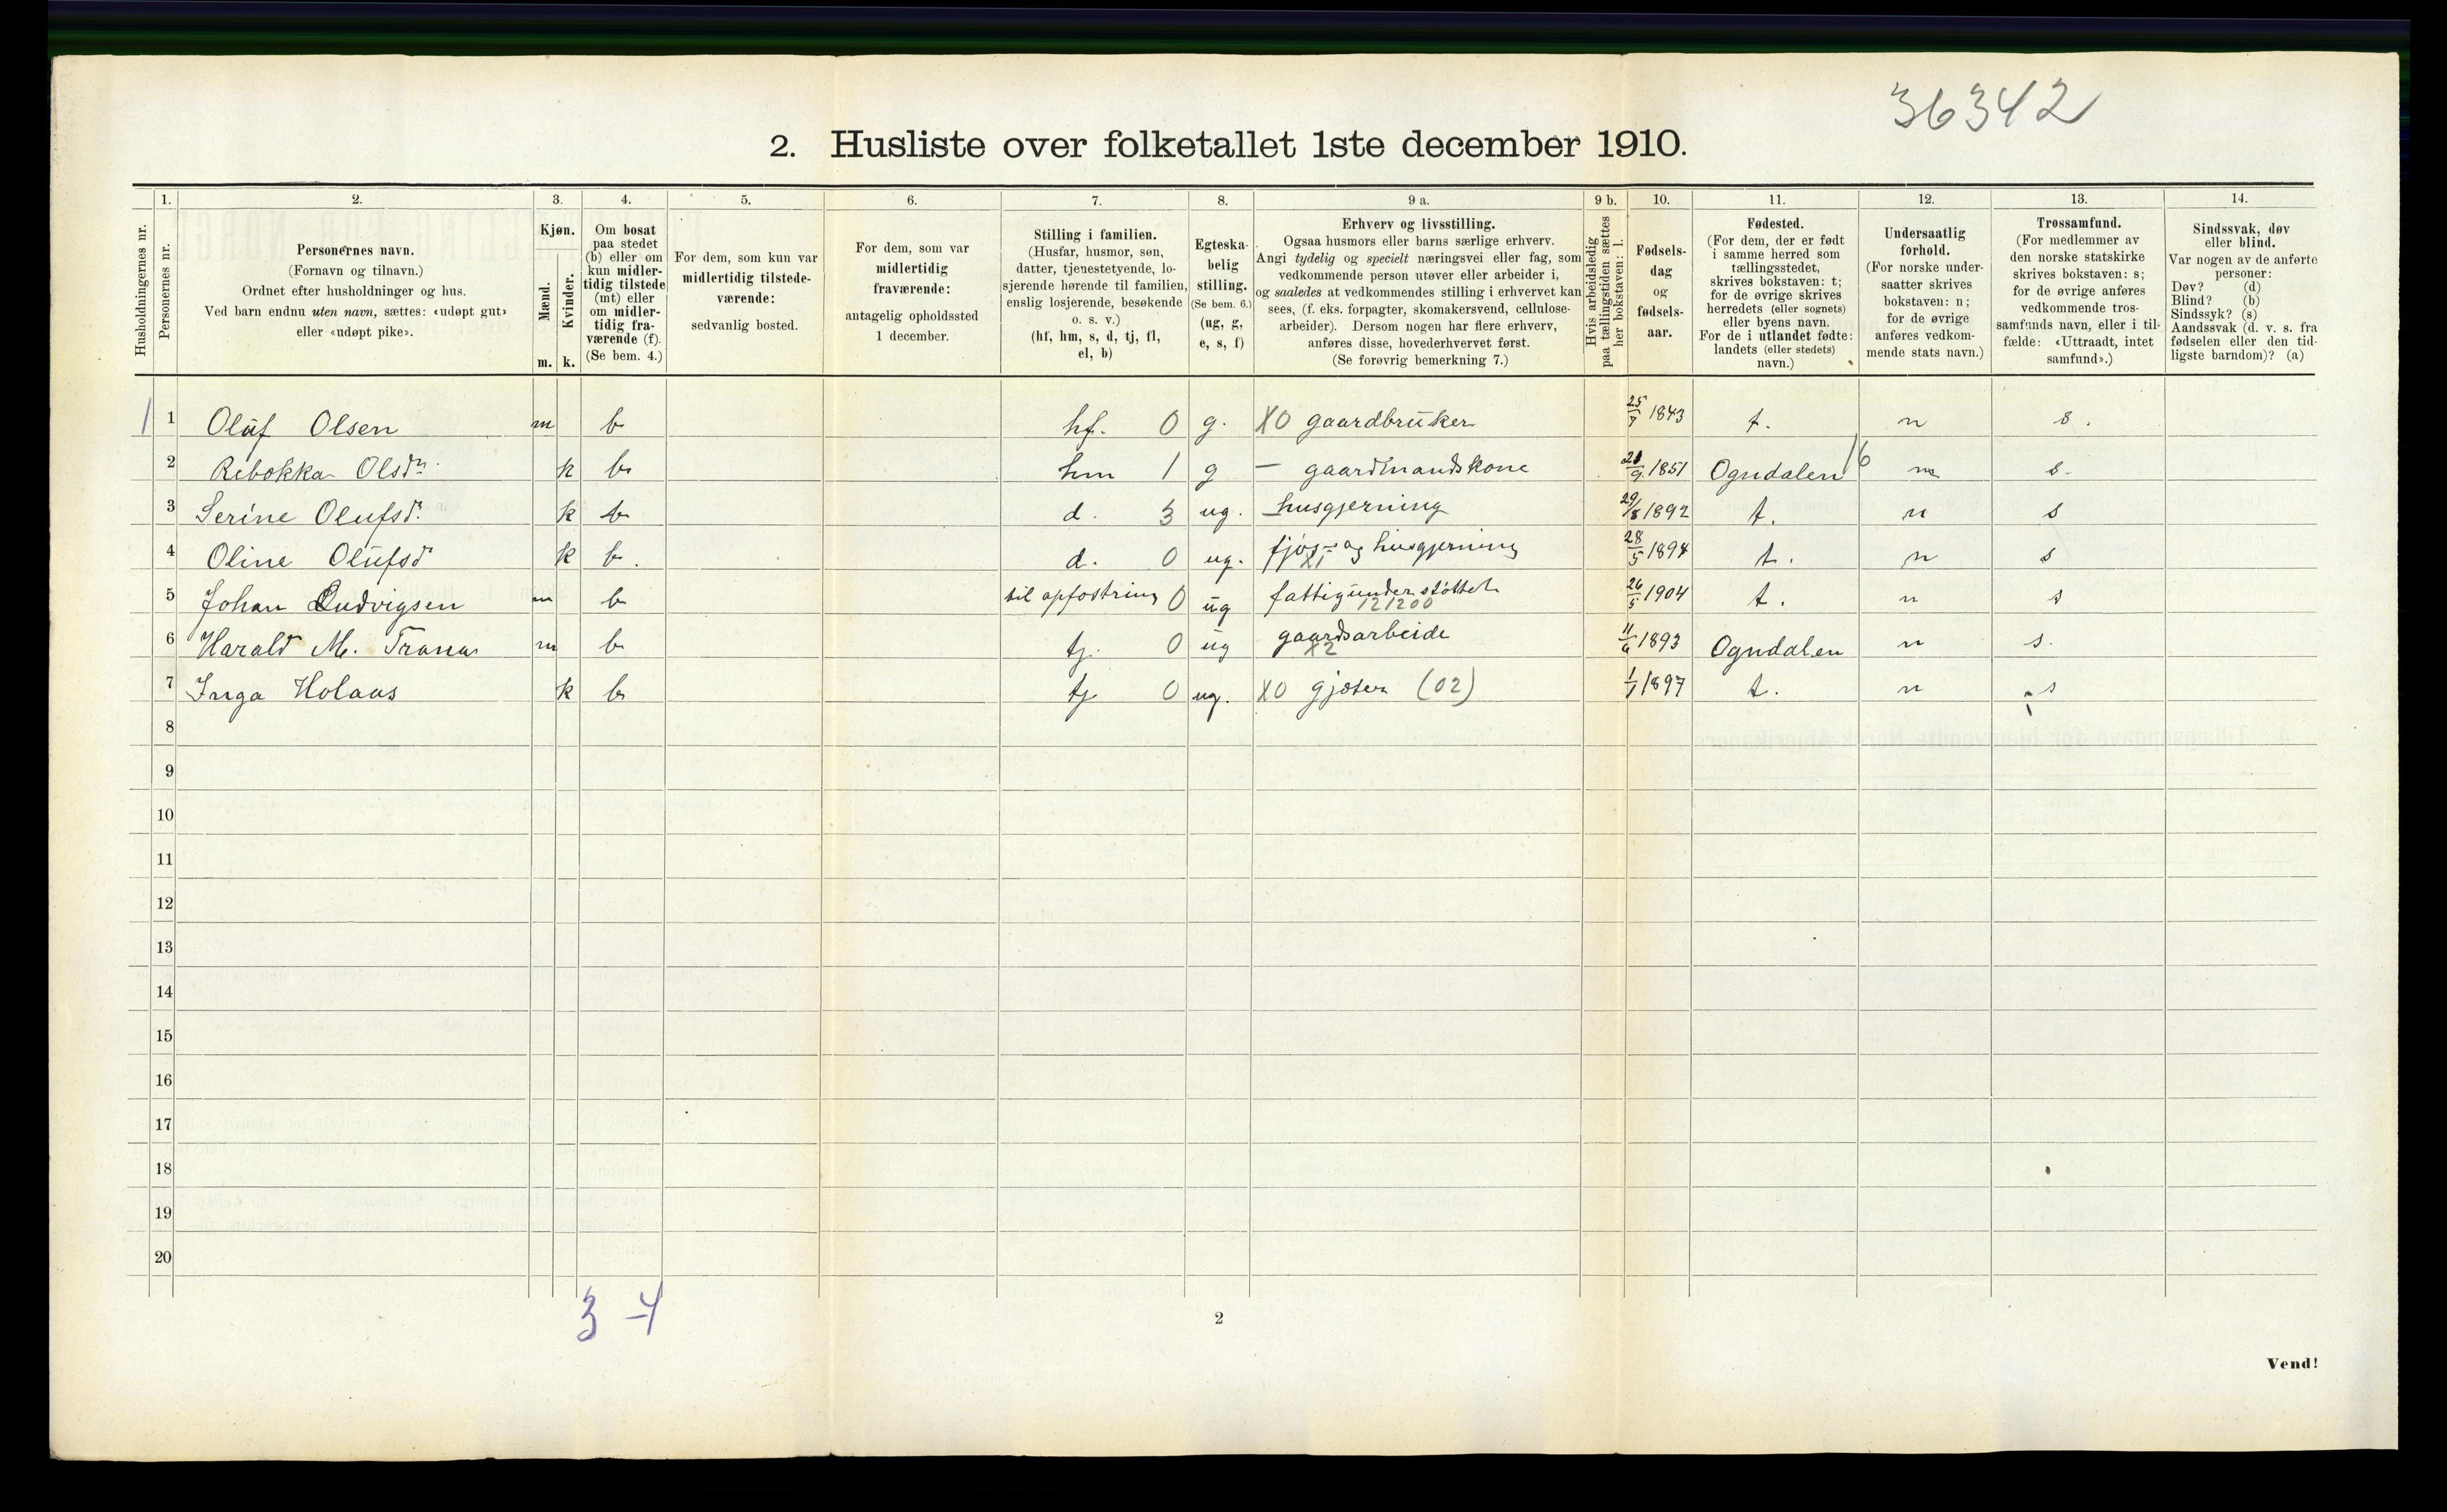 36342
2. Husliste over folketallet 1ste december 1910.
Husholdningernes nr.
1.
Personernes nr.
2.
Personernes navn.
(Fornavn og tilnavn.)
Ordnet efter husholdninger og hus.
Ved barn endnu uten navn, sættes: «udøpt gut»
eller «udøpt pike».
3.
Kjøn.
Mænd.
Kvinder.
m. k.
4.
Om bosat
paa stedet
(b) eller om
kun midler-
tidig tilstede
(mt) eller
om midler-
tidig fra-
værende (f).
(Se bem. 4.)
5.
For dem, som kun var
midlertidig tilstede-
værende:
sedvanlig bosted.
6.
For dem, som var
midlertidig
fraværende:
antagelig opholdssted
1 december.
7.
Stilling i familien.
(Husfar, husmor, søn,
datter, tjenestetyende, lo-
sjerende hørende til familien,
enslig losjerende, besøkende
o. s. v.)
(hf, hm, s, d, tj, fl,
el, b)
8.
Egteska-
belig
stilling.
(Se bem. 6.)
(ug, g,
e, s, f)
9 a.
Erhverv og livsstilling.
Ogsaa husmors eller barns særlige erhverv.
Angi tydelig og specielt næringsvei eller fag, som
vedkommende person utøver eller arbeider i,
og saaledes at vedkommendes stilling i erhvervet kan
sees, (f. eks. forpagter, skomakersvend, cellulose-
arbeider). Dersom nogen har flere erhverv,
anføres disse, hovederhvervet først.
(Se forøvrig bemerkning 7.)
9 b.
Hvis arbeidsledig
paa tællingstiden sættes
her bokstaven: l.
10.
Fødsels-
dag
og
fødsels-
aar.
11.
Fødested.
(For dem, der er født
i samme herred som
tællingsstedet,
skrives bokstaven: t;
for de øvrige skrives
herredets (eller sognets)
eller byens navn.
For de i utlandet fødte:
landets (eller stedets)
navn.)
12.
Undersaatlig
forhold.
(For norske under-
saatter skrives
bokstaven: n;
for de øvrige
anføres vedkom-
mende stats navn.)
13.
Trossamfund.
(For medlemmer av
den norske statskirke
skrives bokstaven: s;
for de øvrige anføres
vedkommende tros-
samfunds navn, eller i til-
fælde: «Uttraadt, intet
samfund».)
14.
Sindssvak, døv
eller blind.
Var nogen av de anførte
personer:
Døv? (d)
Blind? (b)
Sindssyk? (s)
Aandssvak (d. v. s. fra
fødselen eller den tid-
ligste barndom)? (a)
1 1 Oluf Olsen m b hf. 0 g. X0 gaardbruker 1843 t. n s.
2 Rebokka Olsdtr. k b hm 1 g — gaardmandskone 21/9 1851 Ogndalen 16 n s.
3 Serine Olufsd. k b d. 3 ug. husgjerning 29/8 1892 t. n s
4 Oline Olufsd k b. d. 0 ug. fjøs- og husgjerning X1 28/5 1894 t. n s
5 Johan Ludvigsen m b til opfostring 0 ug fattigunderstøttet 121200 26/5 1904 t. n s
6 Harald M. Trana m b tj. 0 ug gaardsarbeide X2 1893 Ogndalen n s.
7 Inga Holaas k b tj 0 ug. X0 gjæter (02) 1/1 1897 t. n s
8
9
10
11
12
13
14
15
16
17
18
19
20
3 - 4
2
Vend!